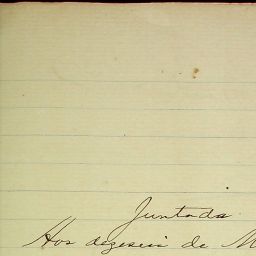 Juntada
Aos dezeseis de M